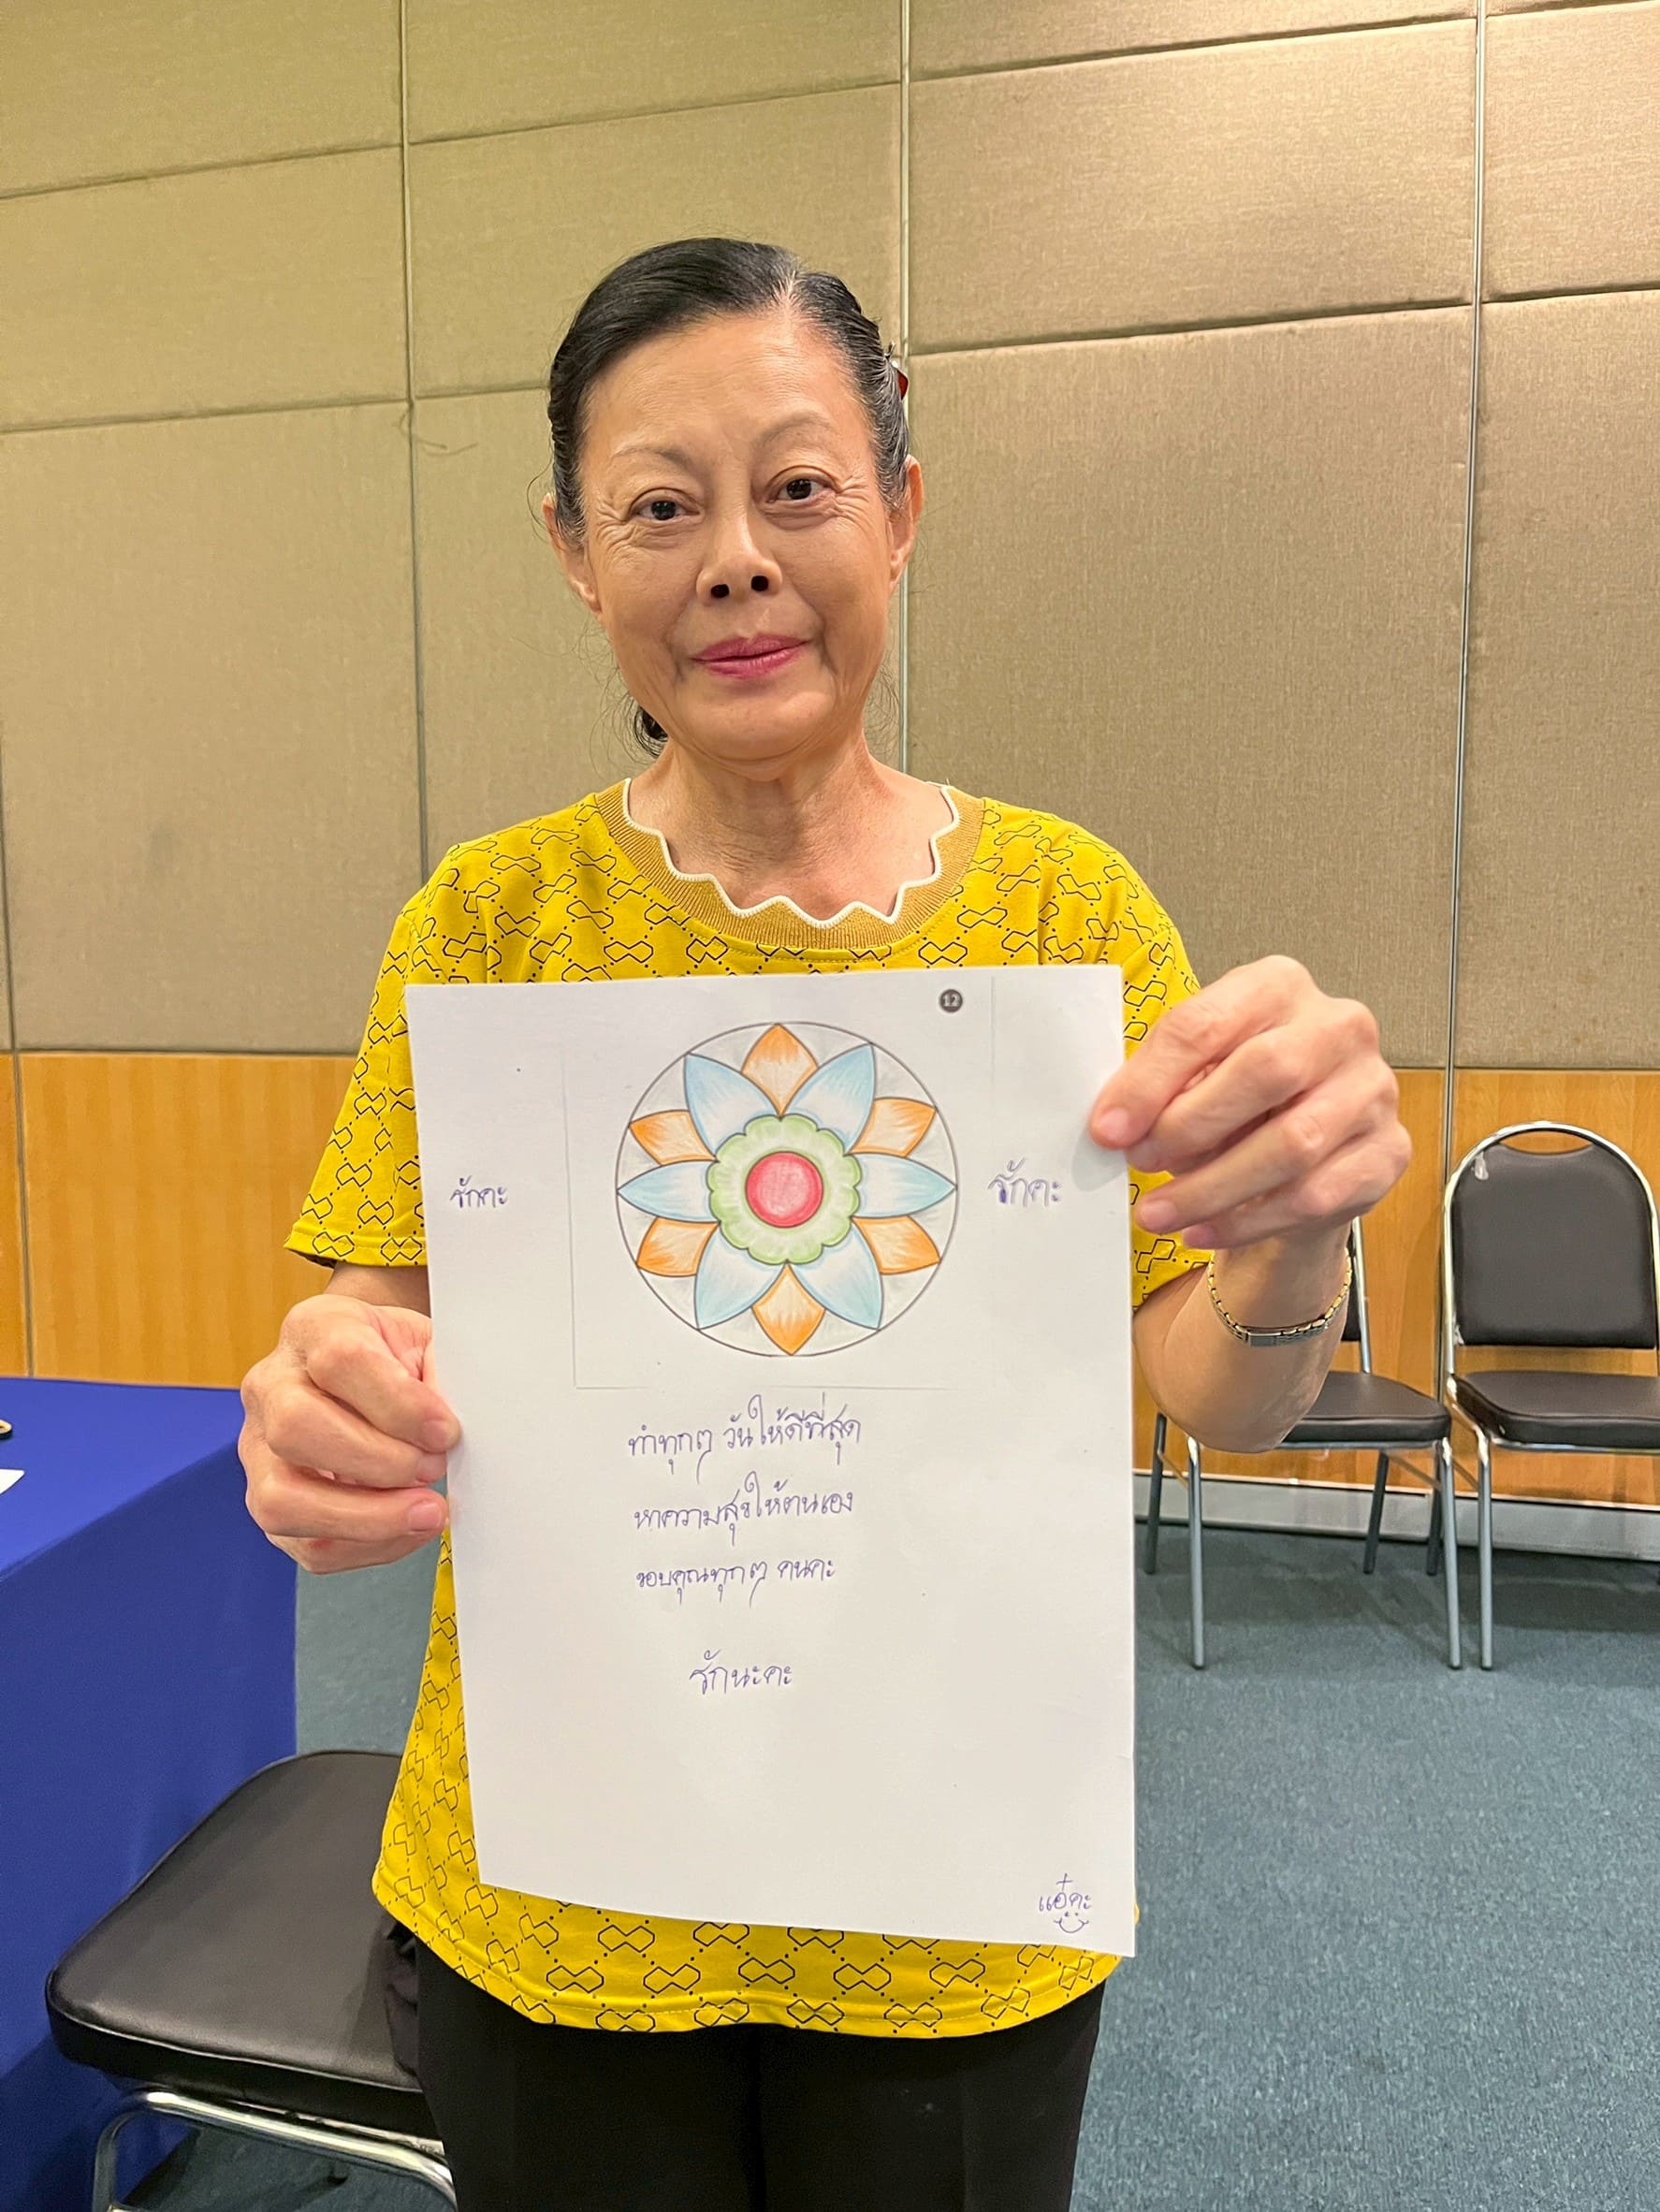 12
รักคะ
รักคะ
ทำทุกๆ วันให้ดีที่สุด
หาความสุขให้ตนเอง
ขอบคุณทุกๆ คนคะ
รักนะคะ
แอ๋คะ